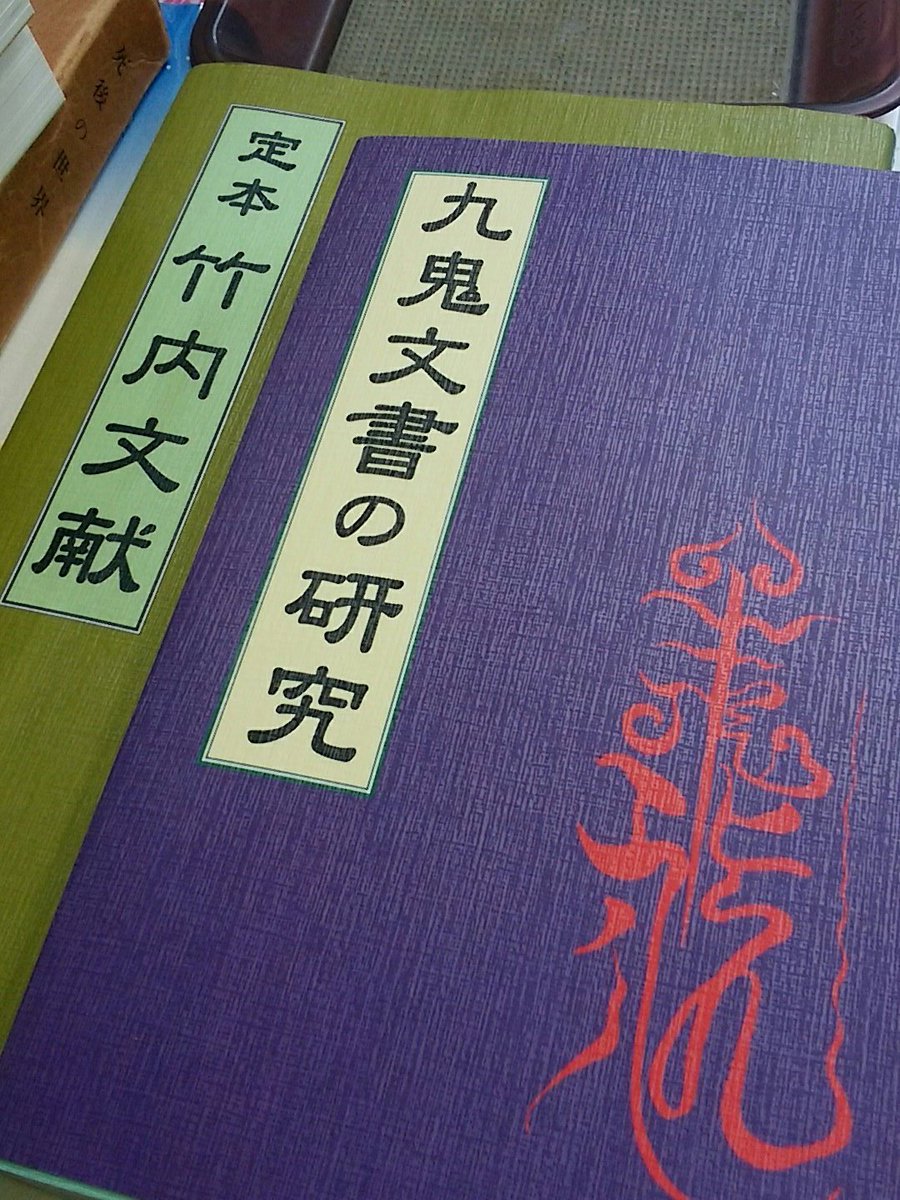 九鬼文書の研究
定本 竹内文献
死後の世界